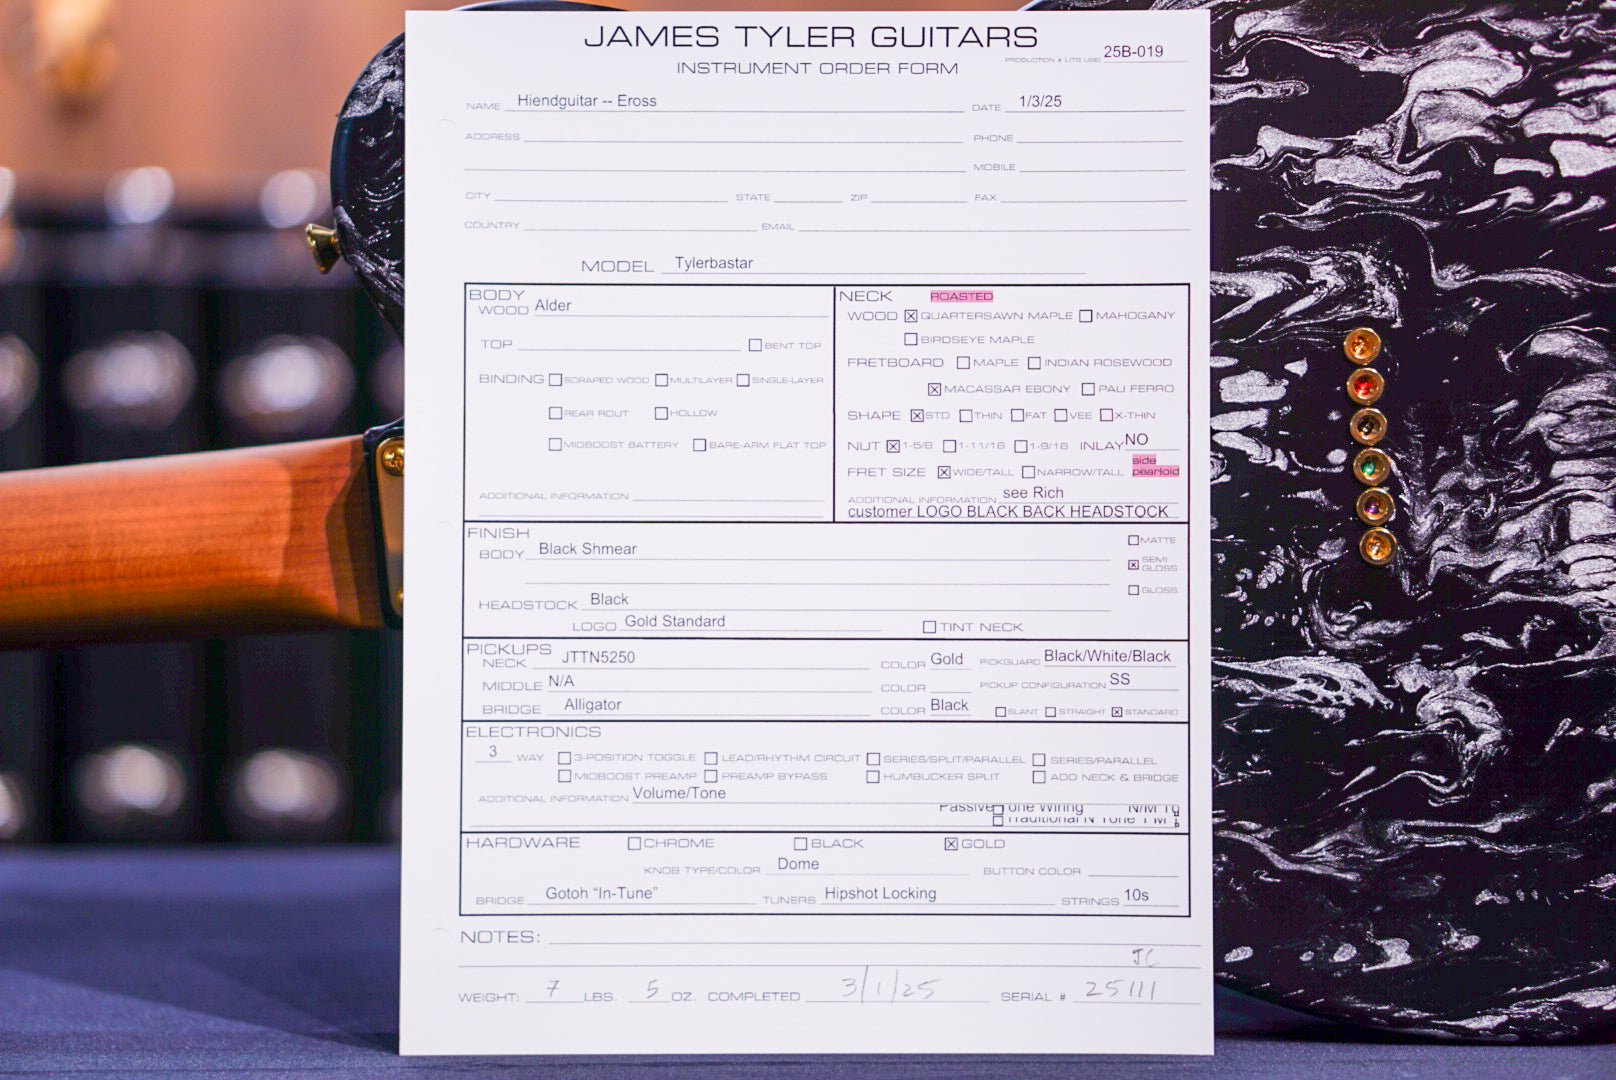 JAMES TYLER GUITARS
INSTRUMENT ORDER FORM
PRODUCTION # (JTG USE) 25B-019
NAME Hiendguitar -- Eross DATE 1/3/25
ADDRESS PHONE
MOBILE
CITY STATE ZIP FAX
COUNTRY EMAIL
MODEL Tylerbastar
BODY
WOOD Alder
TOP BENT TOP
BINDING SCRAPED WOOD MULTILAYER SINGLE-LAYER
REAR ROUT HOLLOW
MIDBOOST BATTERY BARE-ARM FLAT TOP
ADDITIONAL INFORMATION
NECK ROASTED
WOOD ☒ QUARTERSAWN MAPLE ☐ MAHOGANY
☐ BIRDSEYE MAPLE
FRETBOARD ☐ MAPLE ☐ INDIAN ROSEWOOD
☒ MACASSAR EBONY ☐ PAU FERRO
SHAPE ☒ STD ☐ THIN ☐ FAT ☐ VEE ☐ X-THIN
NUT ☒ 1-5/8 ☐ 1-11/16 ☐ 1-9/16 INLAY NO
FRET SIZE ☒ WIDE/TALL ☐ NARROW/TALL side pearloid
ADDITIONAL INFORMATION see Rich
customer LOGO BLACK BACK HEADSTOCK
FINISH
BODY Black Shmear
☐ MATTE
☒ SEMI GLOSS
☐ GLOSS
HEADSTOCK Black
LOGO Gold Standard ☐ TINT NECK
PICKUPS
NECK JTTN5250 COLOR Gold PICKGUARD Black/White/Black
MIDDLE N/A COLOR PICKUP CONFIGURATION SS
BRIDGE Alligator COLOR Black ☐ SLANT ☐ STRAIGHT ☒ STANDARD
ELECTRONICS
3 WAY ☐ 3-POSITION TOGGLE ☐ LEAD/RHYTHM CIRCUIT ☐ SERIES/SPLIT/PARALLEL ☐ SERIES/PARALLEL
☐ MIDBOOST PREAMP ☐ PREAMP BYPASS ☐ HUMBUCKER SPLIT ☐ ADD NECK & BRIDGE
ADDITIONAL INFORMATION Volume/Tone
Passive Tone Wiring
HARDWARE ☐ CHROME ☐ BLACK ☒ GOLD
KNOB TYPE/COLOR Dome BUTTON COLOR
BRIDGE Gotoh "In-Tune" TUNERS Hipshot Locking STRINGS 10s
NOTES:
JC
WEIGHT: 7 LBS. 5 OZ. COMPLETED 3/1/25 SERIAL # 25111